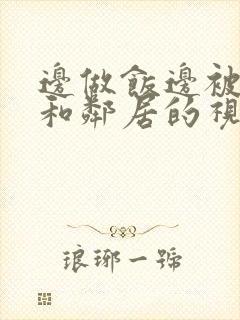 邊做飯邊被
和鄰居的視
琅琊一號